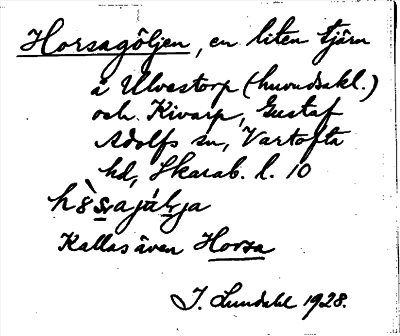 Horsagöljen, en liten tjärn
i Ulvestorp (huvudsakl.)
och Kivarp, Gustaf
Adolfs sn, Vartofta
hd, Skarab. l. 10
Kallas även Horsa
I. Lundahl 1928.